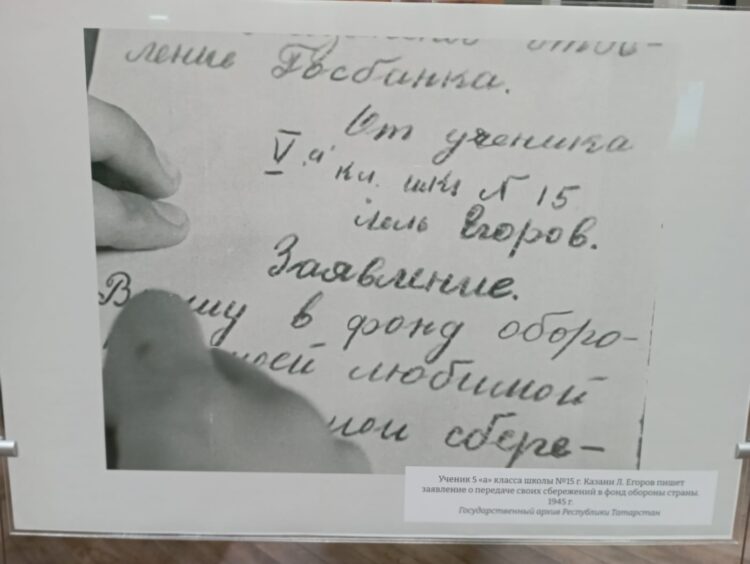 ление Госбанка.
От ученика
V "а" кл. шк. N 15
Егоров.
Заявление.
в фонд оборо-
моей любимой
мои сбере-
Ученик 5 «а» класса школы №15 г. Казани Л. Егоров пишет
заявление о передаче своих сбережений в фонд обороны страны.
1945 г.
Государственный архив Республики Татарстан